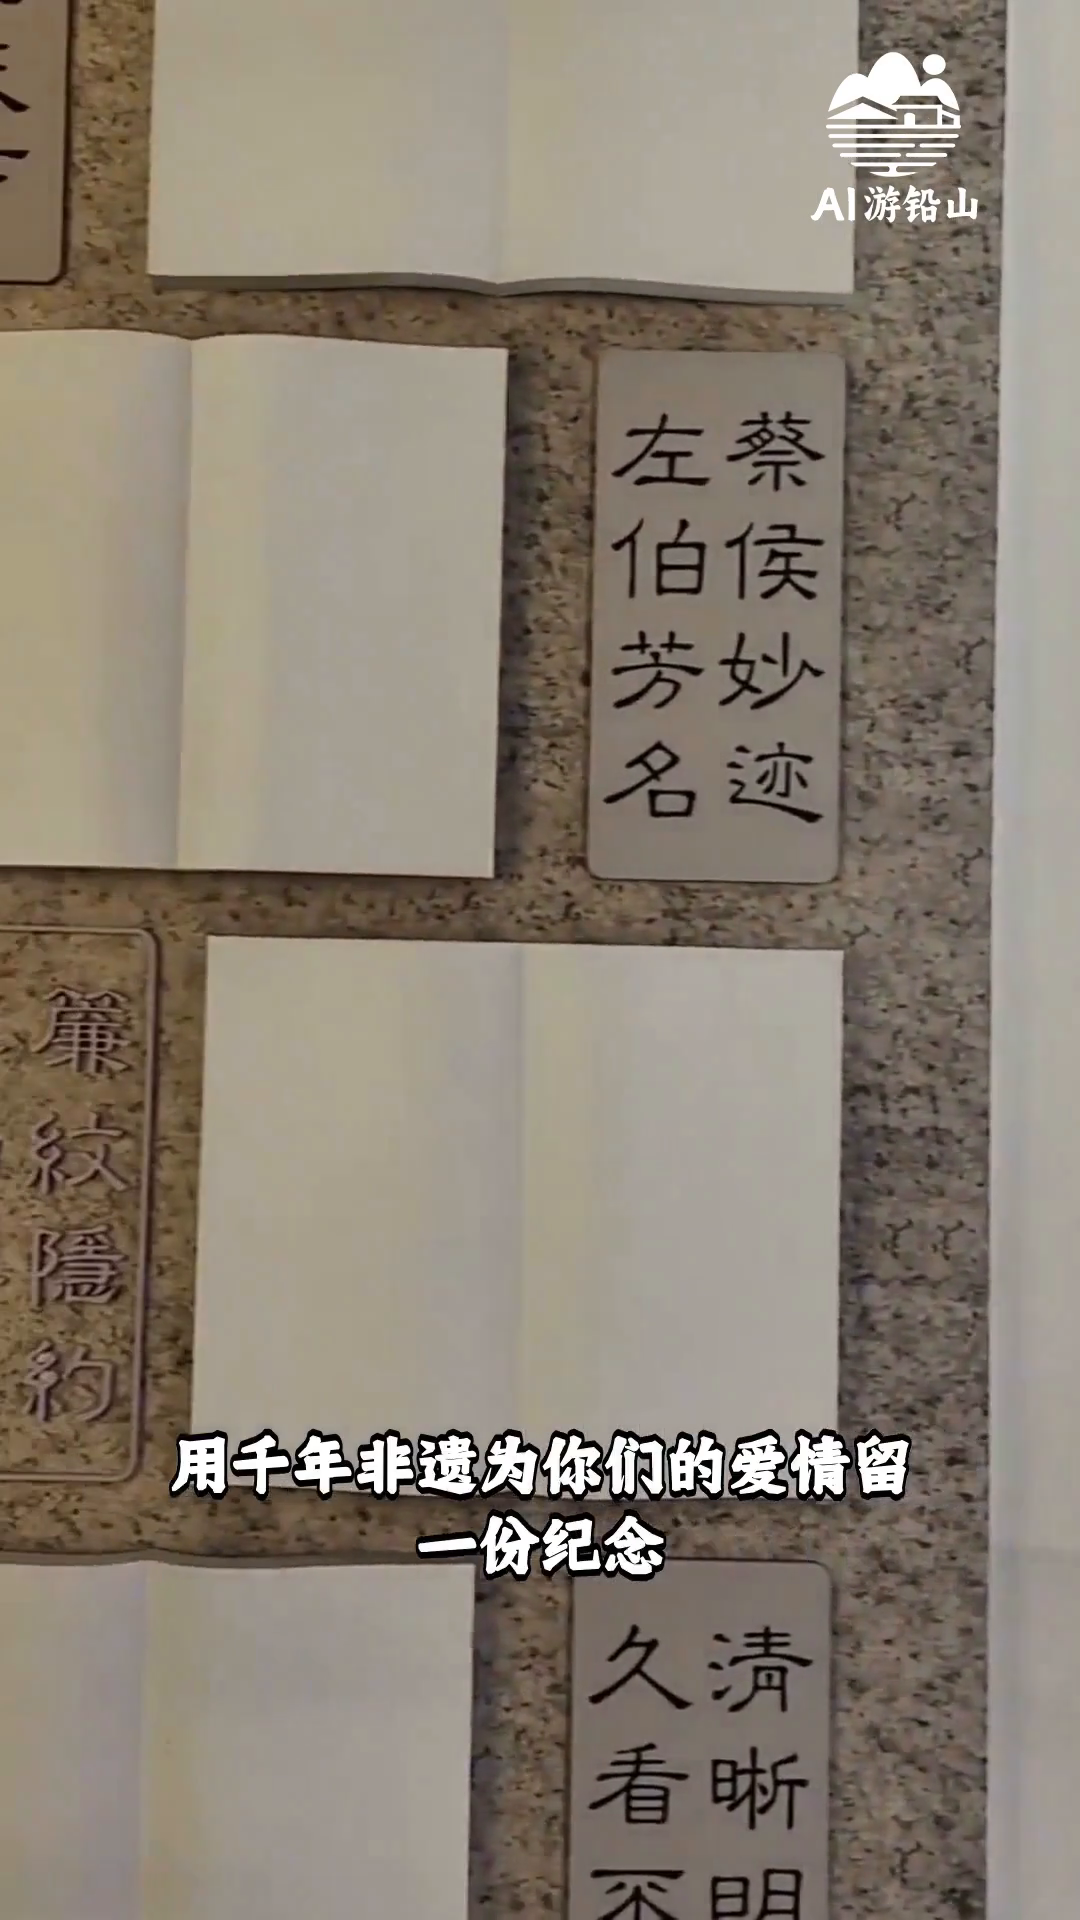 AI游铅山
蔡侯妙迹
左伯芳名
簾紋隱約
用千年非遗为你们的爱情留
一份纪念
清晰明
久看不